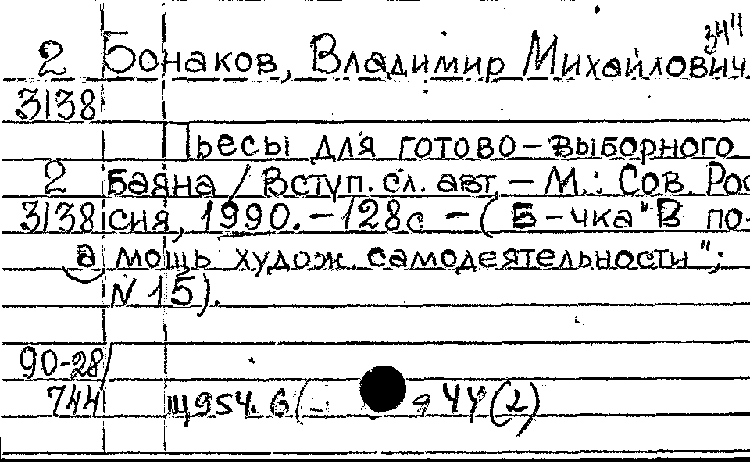 34"
2 Бонаков, Владимир Михайлович.
3138
Пьесы для готово-выборного
2 баяна / Вступ. сл. авт. – М.: Сов. Рос
3138 сия, 1990. – 128с – ( Б-чка "В по-
а мощь худож. самодеятельности";
N 15).
90-28/
744 Щ954.6(